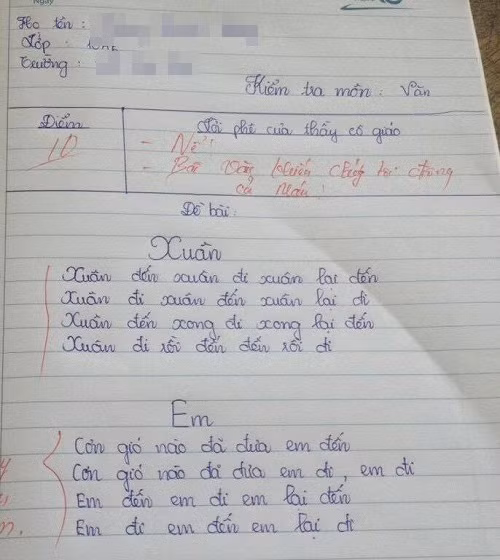 Ngày
Họ tên :
Lớp : 10A2
Trường :
Kiểm tra môn : Văn
Điểm
Lời phê của thầy cô giáo
10
- Nể!
- Bài văn khiến chúng tôi
cả
Đề bài :
Xuân
Xuân đến xuân đi xuân lại đến
Xuân đi xuân đến xuân lại đi
Xuân đến xong đi xong lại đến
Xuân đi rồi đến đến rồi đi
Em
Cơn gió nào đã đưa em đến
Cơn gió nào đã đưa em đi, em đi
Em đến em đi em lại đến
Em đi em đến em lại đi